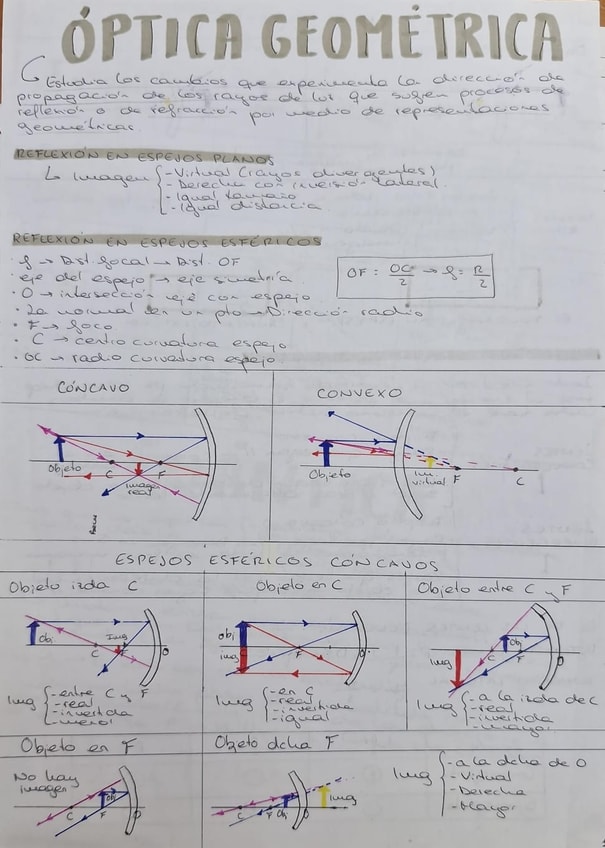 ÓPTICA GEOMÉTRICA
Estudia los cambios que experimenta la dirección de
propagación de los rayos de luz que sufren procesos de
reflexión o de refracción por medio de representaciones
geométricas.
REFLEXIÓN EN ESPEJOS PLANOS
↳ Imagen - Virtual (rayos divergentes)
- Derecha con inversión lateral.
- Igual tamaño
- Igual distancia
REFLEXIÓN EN ESPEJOS ESFÉRICOS
· f → Dist focal → Dist. OF
· eje del espejo → eje simetría
· O → intersección eje con espejo
· La normal en un pto → Dirección radio
· F → foco
· C → centro curvatura espejo
· OC → radio curvatura espejo
OF = OC/2 → f = R/2
CÓNCAVO
CONVEXO
Objeto
C
F
imagen
real
Objeto
Im
virtual
F
C
ESPEJOS ESFÉRICOS CÓNCAVOS
Objeto izda C
Objeto en C
Objeto entre C y F
Obj
C
Img
F
O
Obj
Img
F
O
Img
C
Obj
F
O
Img - entre C y F
- real
- invertida
- menor
Img - en C
- real
- invertida
- igual
Img - a la izda de C
- real
- invertida
- mayor
Objeto en F
Objeto dcha F
No hay
imagen
C
F
Obj
O
C
F
Obj
O
Img
Img - a la dcha de O
- Virtual
- Derecha
- Mayor